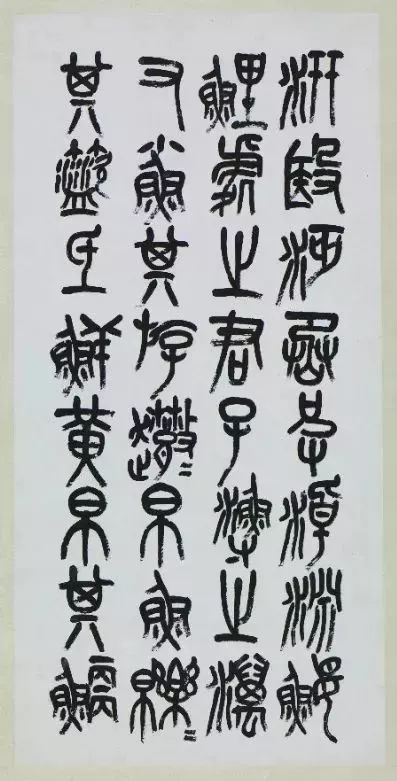 汧殹沔烝皮淖淵鰋
鯉處之君子漁之澫
又小魚其斿帛魚皪=
其氐鮮黃帛其鯿